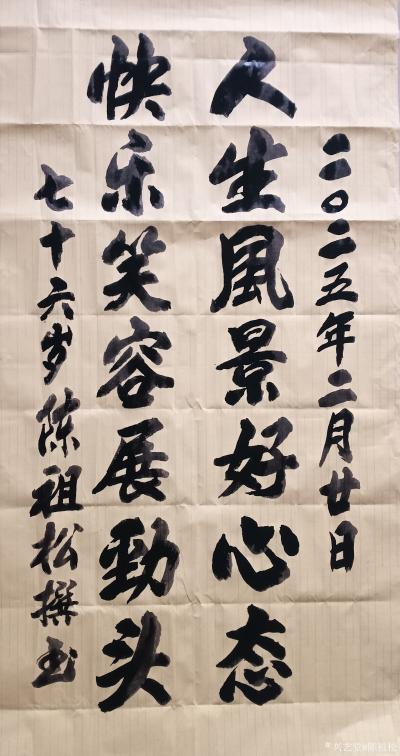 二〇二五年二月廿日
人生風景好心态
快乐笑容展勁头
七十六岁陈祖松撰书